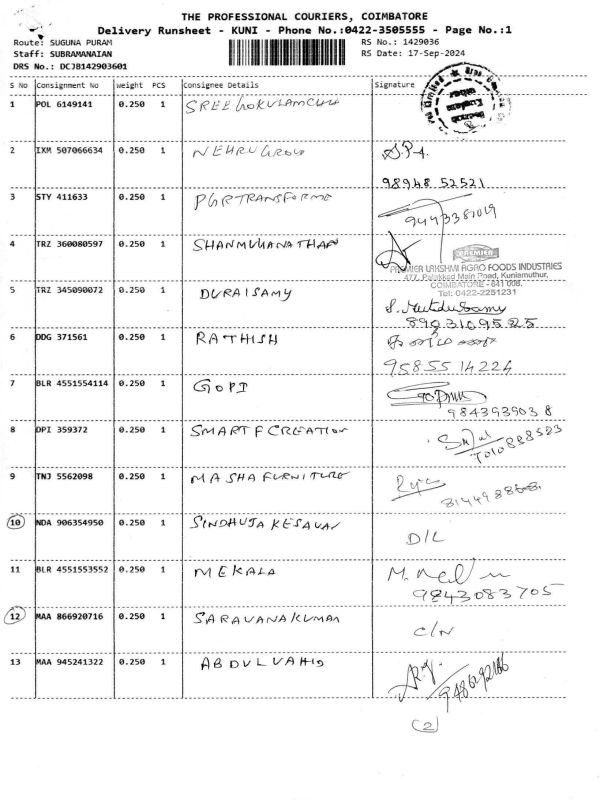 THE PROFESSIONAL COURIERS, COIMBATORE
Delivery Runsheet - KUNI - Phone No.:0422-3505555 - Page No.:1
Route: SUGUNA PURAM
Staff: SUBRAMANAIAN
DRS No.: DCJB142903601
RS No.: 1429036
RS Date: 17-Sep-2024
S No Consignment No weight PCS Consignee Details Signature
1 POL 6149141 0.250 1 SREEGOKULAM
2 IXM 507066634 0.250 1 NEHRU GROUP S.P.A.
98948 52521
3 STY 411633 0.250 1 PGR TRANSFORME
9443387019
4 TRZ 360080597 0.250 1 SHANMUHANATHAN
PREMIER
PREMIER LAKSHMI AGRO FOODS INDUSTRIES
477, Palakkad Main Road, Kuniamuthur,
COIMBATORE - 641 008.
Tel: 0422-2251231
5 TRZ 345090072 0.250 1 DURAISAMY
S. Mutdusamy
8903109525
6 DDG 371561 0.250 1 RATHISH
9585514224
7 BLR 4551554114 0.250 1 GOPI
9843939038
8 DPI 359372 0.250 1 SMART F CREATION
7010888583
9 TNJ 5562098 0.250 1 MASHA FURNITURE
10 NDA 906354950 0.250 1 SINDHUJA KESAVAN
D/L
11 BLR 4551553552 0.250 1 MEKALA
M.
9843083705
12 MAA 866920716 0.250 1 SARAVANAKUMAR
C/N
13 MAA 945241322 0.250 1 ABDULVAHID
(2)